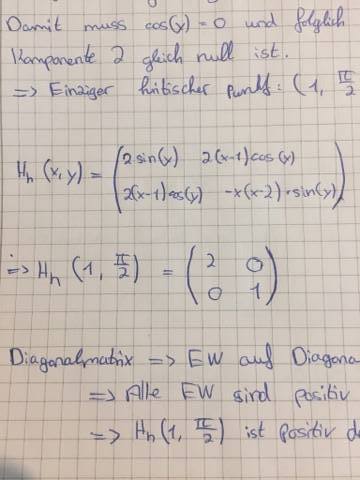 Damit muss cos(y) = 0 und folglich
Komponente 2 gleich null ist.
=> Einziger kritischer Punkt: (1, π/2
H_h (x,y) = ( 2 sin(y) 2(x-1) cos(y)
2(x-1) cos(y) -x(x-2) · sin(y) )
=> H_h (1, π/2) = ( 2 0
0 1 )
Diagonalmatrix => EW auf Diagona
=> Alle EW sind positiv
=> H_h (1, π/2) ist positiv de